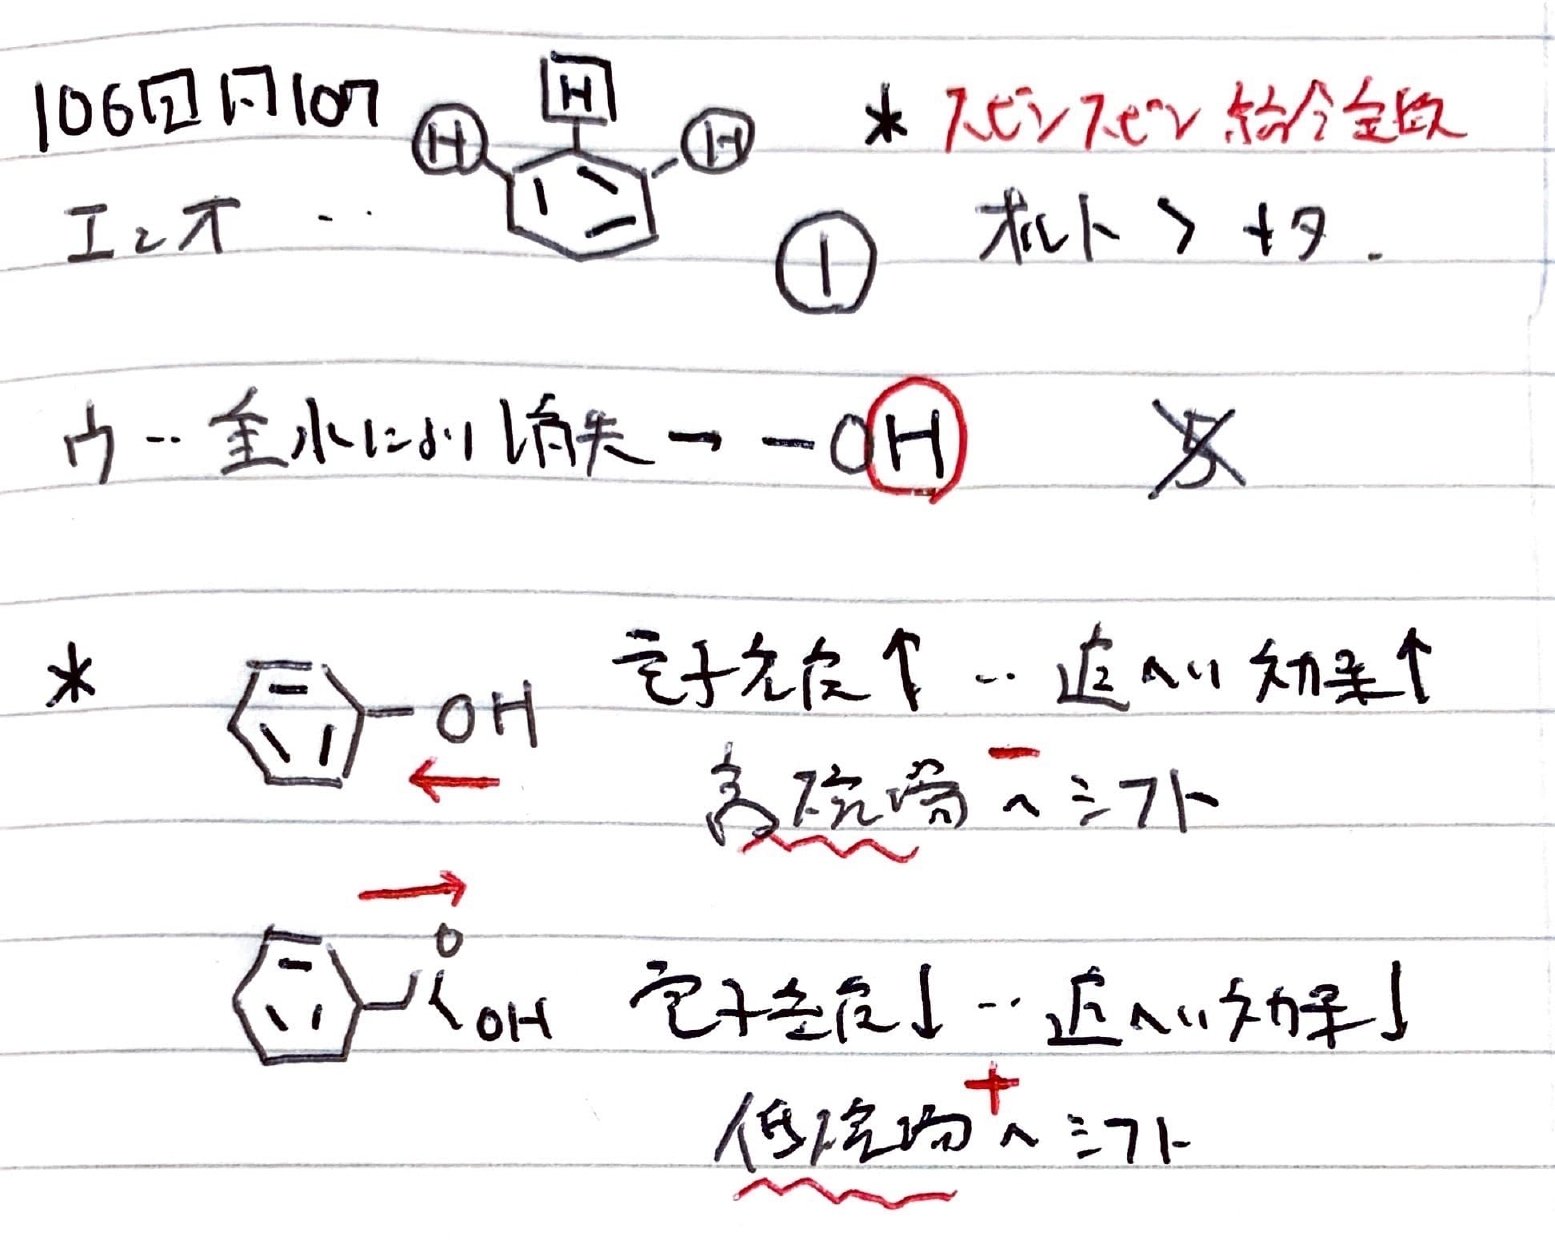 106回 問107
エとオ ‥
H H H
①
* スピンスピン結合定数
オルト > メタ.
ウ ‥ 重水により消失 → -OH 5
* OH 電子密度↑ ‥ 遮へい効果↑
高磁場へシフト -
O OH 電子密度↓ ‥ 遮へい効果↓
低磁場へシフト +